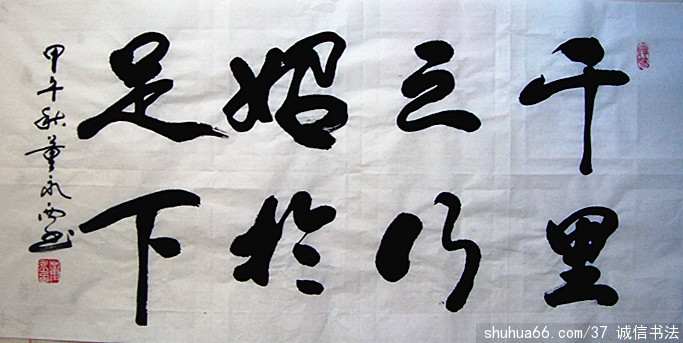 千里
之行
始於
足下
甲午秋董永西书
shuhua66.com/37 诚信书法